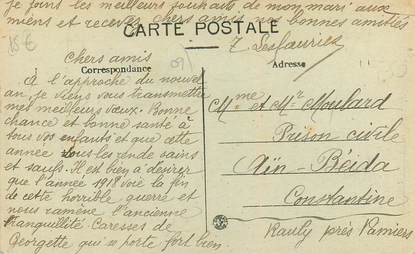 je joins les meilleurs souhaits de mon mari aux
miens et recevez chers amis nos bonnes amitiés
J. Deslauries
CARTE POSTALE
15 €
Chers amis
Correspondance
Adresse
A l'approche du nouvel
an, je viens vous transmettre
mes meilleurs vœux. Bonne
chance et bonne santé à
tous vos enfants et que cette
année vous les rende sains
et saufs. Il est bien à désirer
que l'année 1918 voie la fin
de cette horrible guerre et
nous ramène l'ancienne
tranquillité. Caresses de
Georgette qui se porte fort bien
Mme et Mr Moulard
Prison civile
Aïn-Béida
Constantine
Rauly près Pamiers